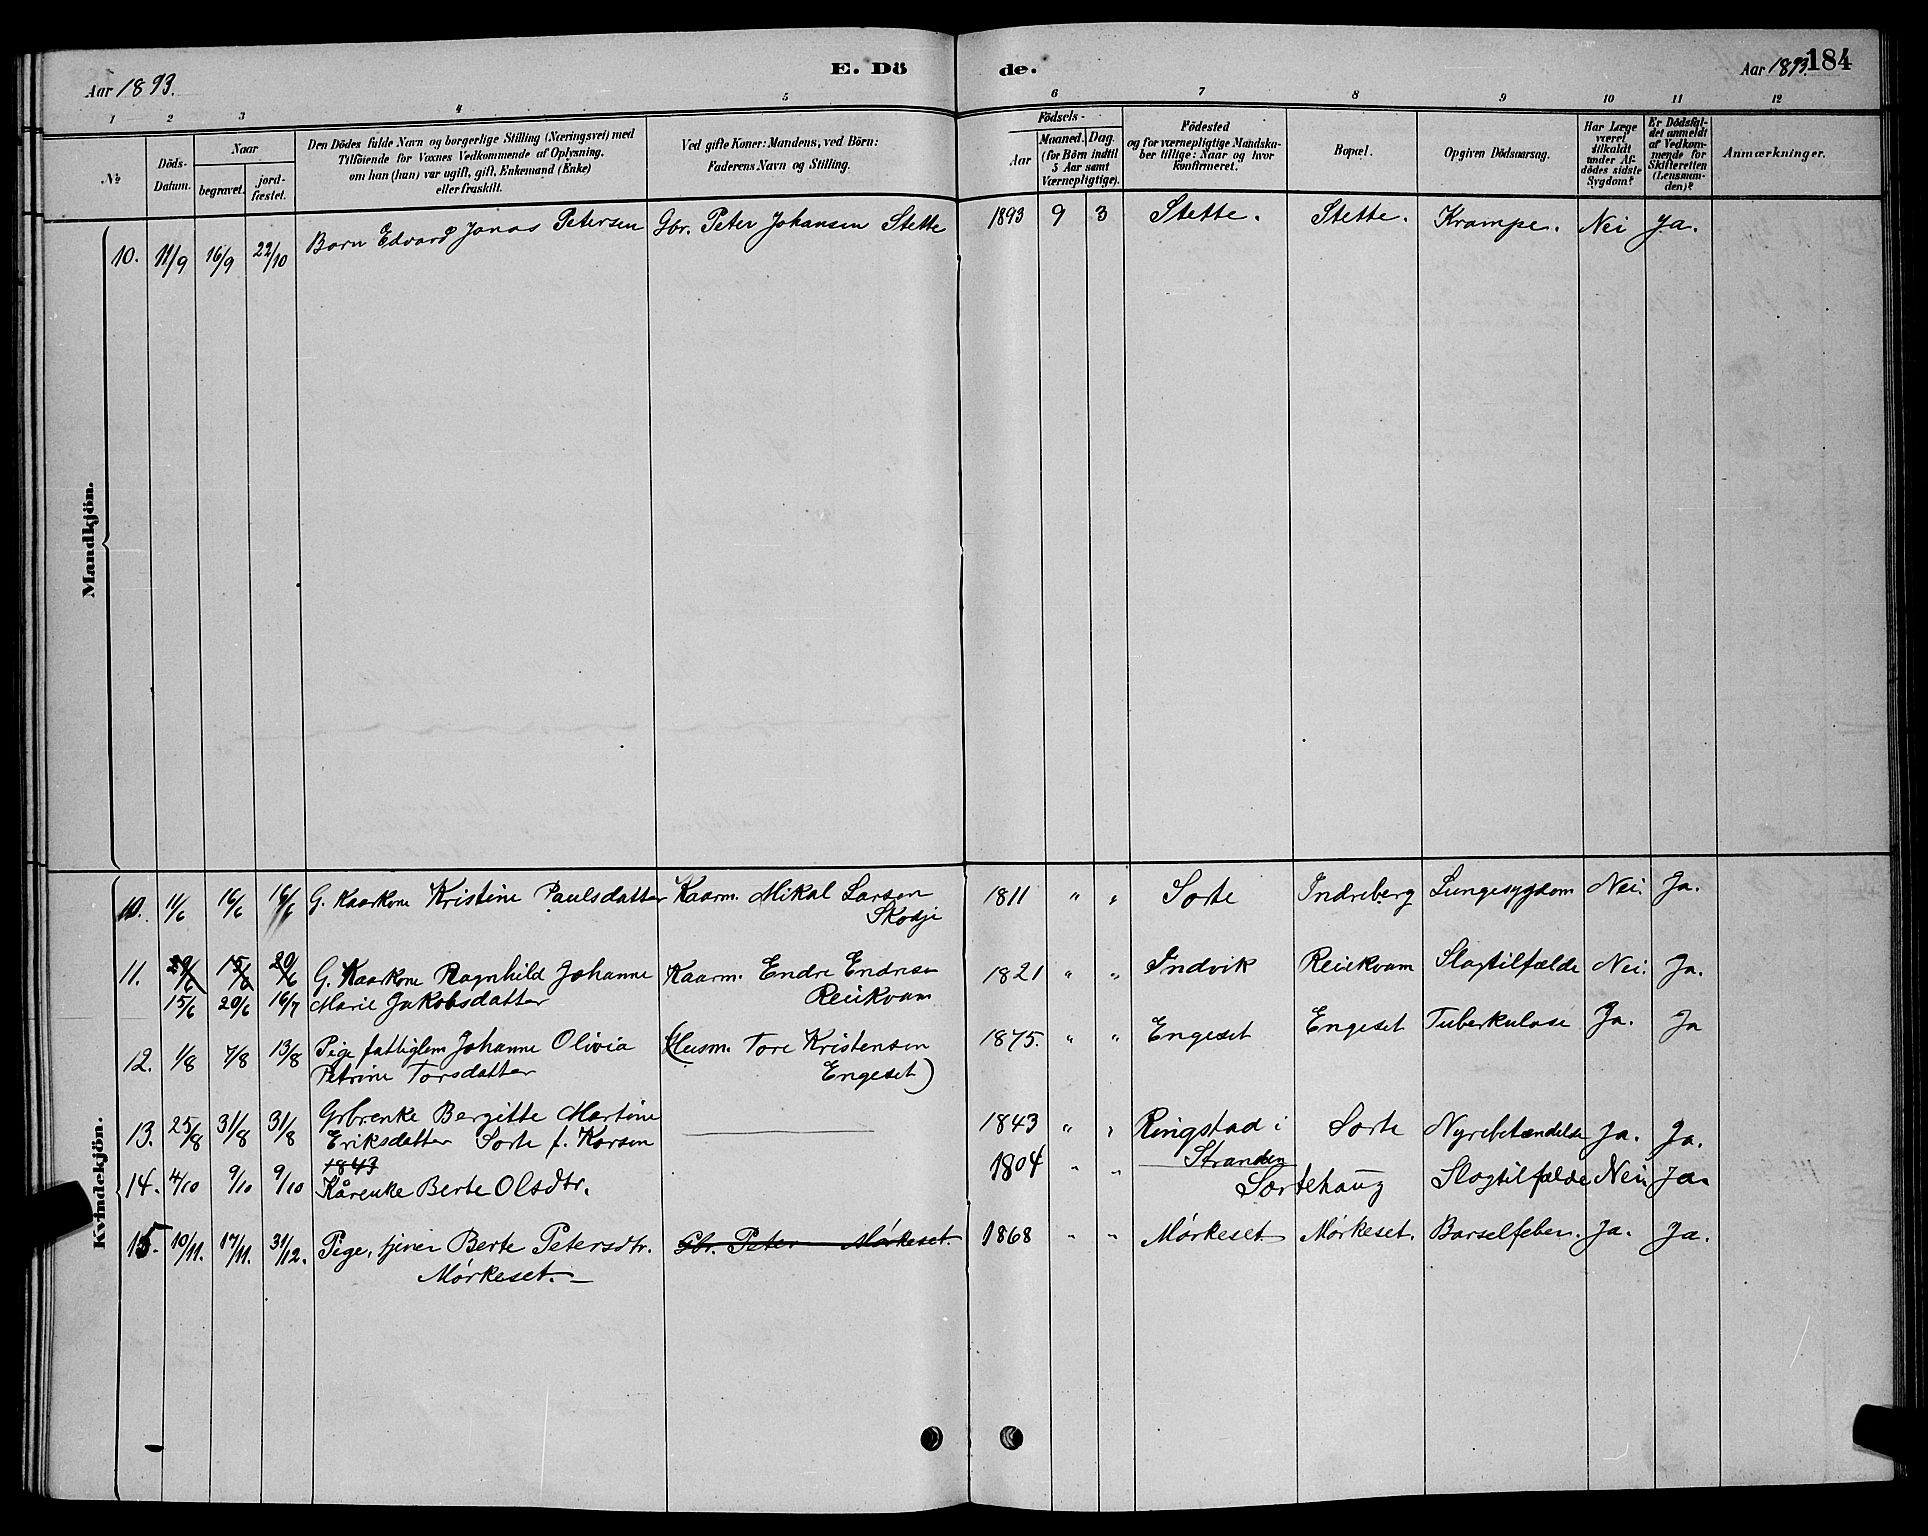 Aar 1893.
E. Dö
de.
Aar 1893.
184
1 2 3 4 5 6 7 8 9 10 11 12
No
Döds-
Datum.
Naar
begravet.
jord-
fæstet.
Den Dödes fulde Navn og borgerlige Stilling (Næringsvei) med
Tilföiende for Voxnes Vedkommende af Oplysning,
om han (hun) var ugift, gift, Enkemand (Enke)
eller fraskilt.
Ved gifte Koner: Mandens, ved Börn:
Faderens Navn og Stilling.
Födsels-
Aar
Maaned. Dag.
(for Börn indtil
5 Aar samt
Værnepligtige).
Födested
og for værnepligtige Mandska-
ber tillige: Naar og hvor
konfirmeret.
Bopæl.
Opgiven Dödsaarsag.
Har Læge
været
tilkaldt
under Af-
dödes sidste
Sygdom?
Er Dödsfal-
det anmeldt
af Vedkom-
mende for
Skifteretten
(Lensman-
den)?
Anmærkninger.
Mandkjön.
10. 11/9 16/9 22/10 Barn Edvard Jonas Petersen Gbr. Peter Johansen Stette 1893 9 3 Stette. Stette. Krampe. Nei Ja.
Kvindekjön.
10. 11/6 16/6 16/6 G. Kaarkone Kristine Paulsdatter Kaarm. Mikal Larsen 1811 " " Sorte Indreberg Lungesygdom Nei Ja.
Skodje
11. 15/6 20/6 G. Kaarkone Ragnhild Johanne Kaarm. Endre Endresen 1821 " " Indvik Reiekvam Slagtilfælde Nei. Ja.
15/6 20/6 16/7 Marie Jakobsdatter Reiekvam
12. 1/8 7/8 13/8 Pige fattiglem Johanne Olivia (Husm. Tore Kristensen 1875. " " Engeset Engeset Tuberkulose Ja. Ja
Petrine Torsdatter Engeset)
13. 25/8 31/8 31/8 Grbrenke Bergitte Martine 1843 " " Ringstad i Sorte Nyrebetændelse Ja. Ja.
Eriksdatter Sorte f. Korsen Stranden
1843
14. 4/10 9/10 9/10 Kårenke Berte Olsdtr. 1804 " " Sortehaug Slagtilfælde Nei Ja.
15. 10/11. 17/11. 31/12. Pige, tjener Berte Petersdtr. Gbr. Peter Mørkeset. 1868 " " Mørkeset. Mørkeset. Barselfeber. Ja. Ja.
Mørkeset.